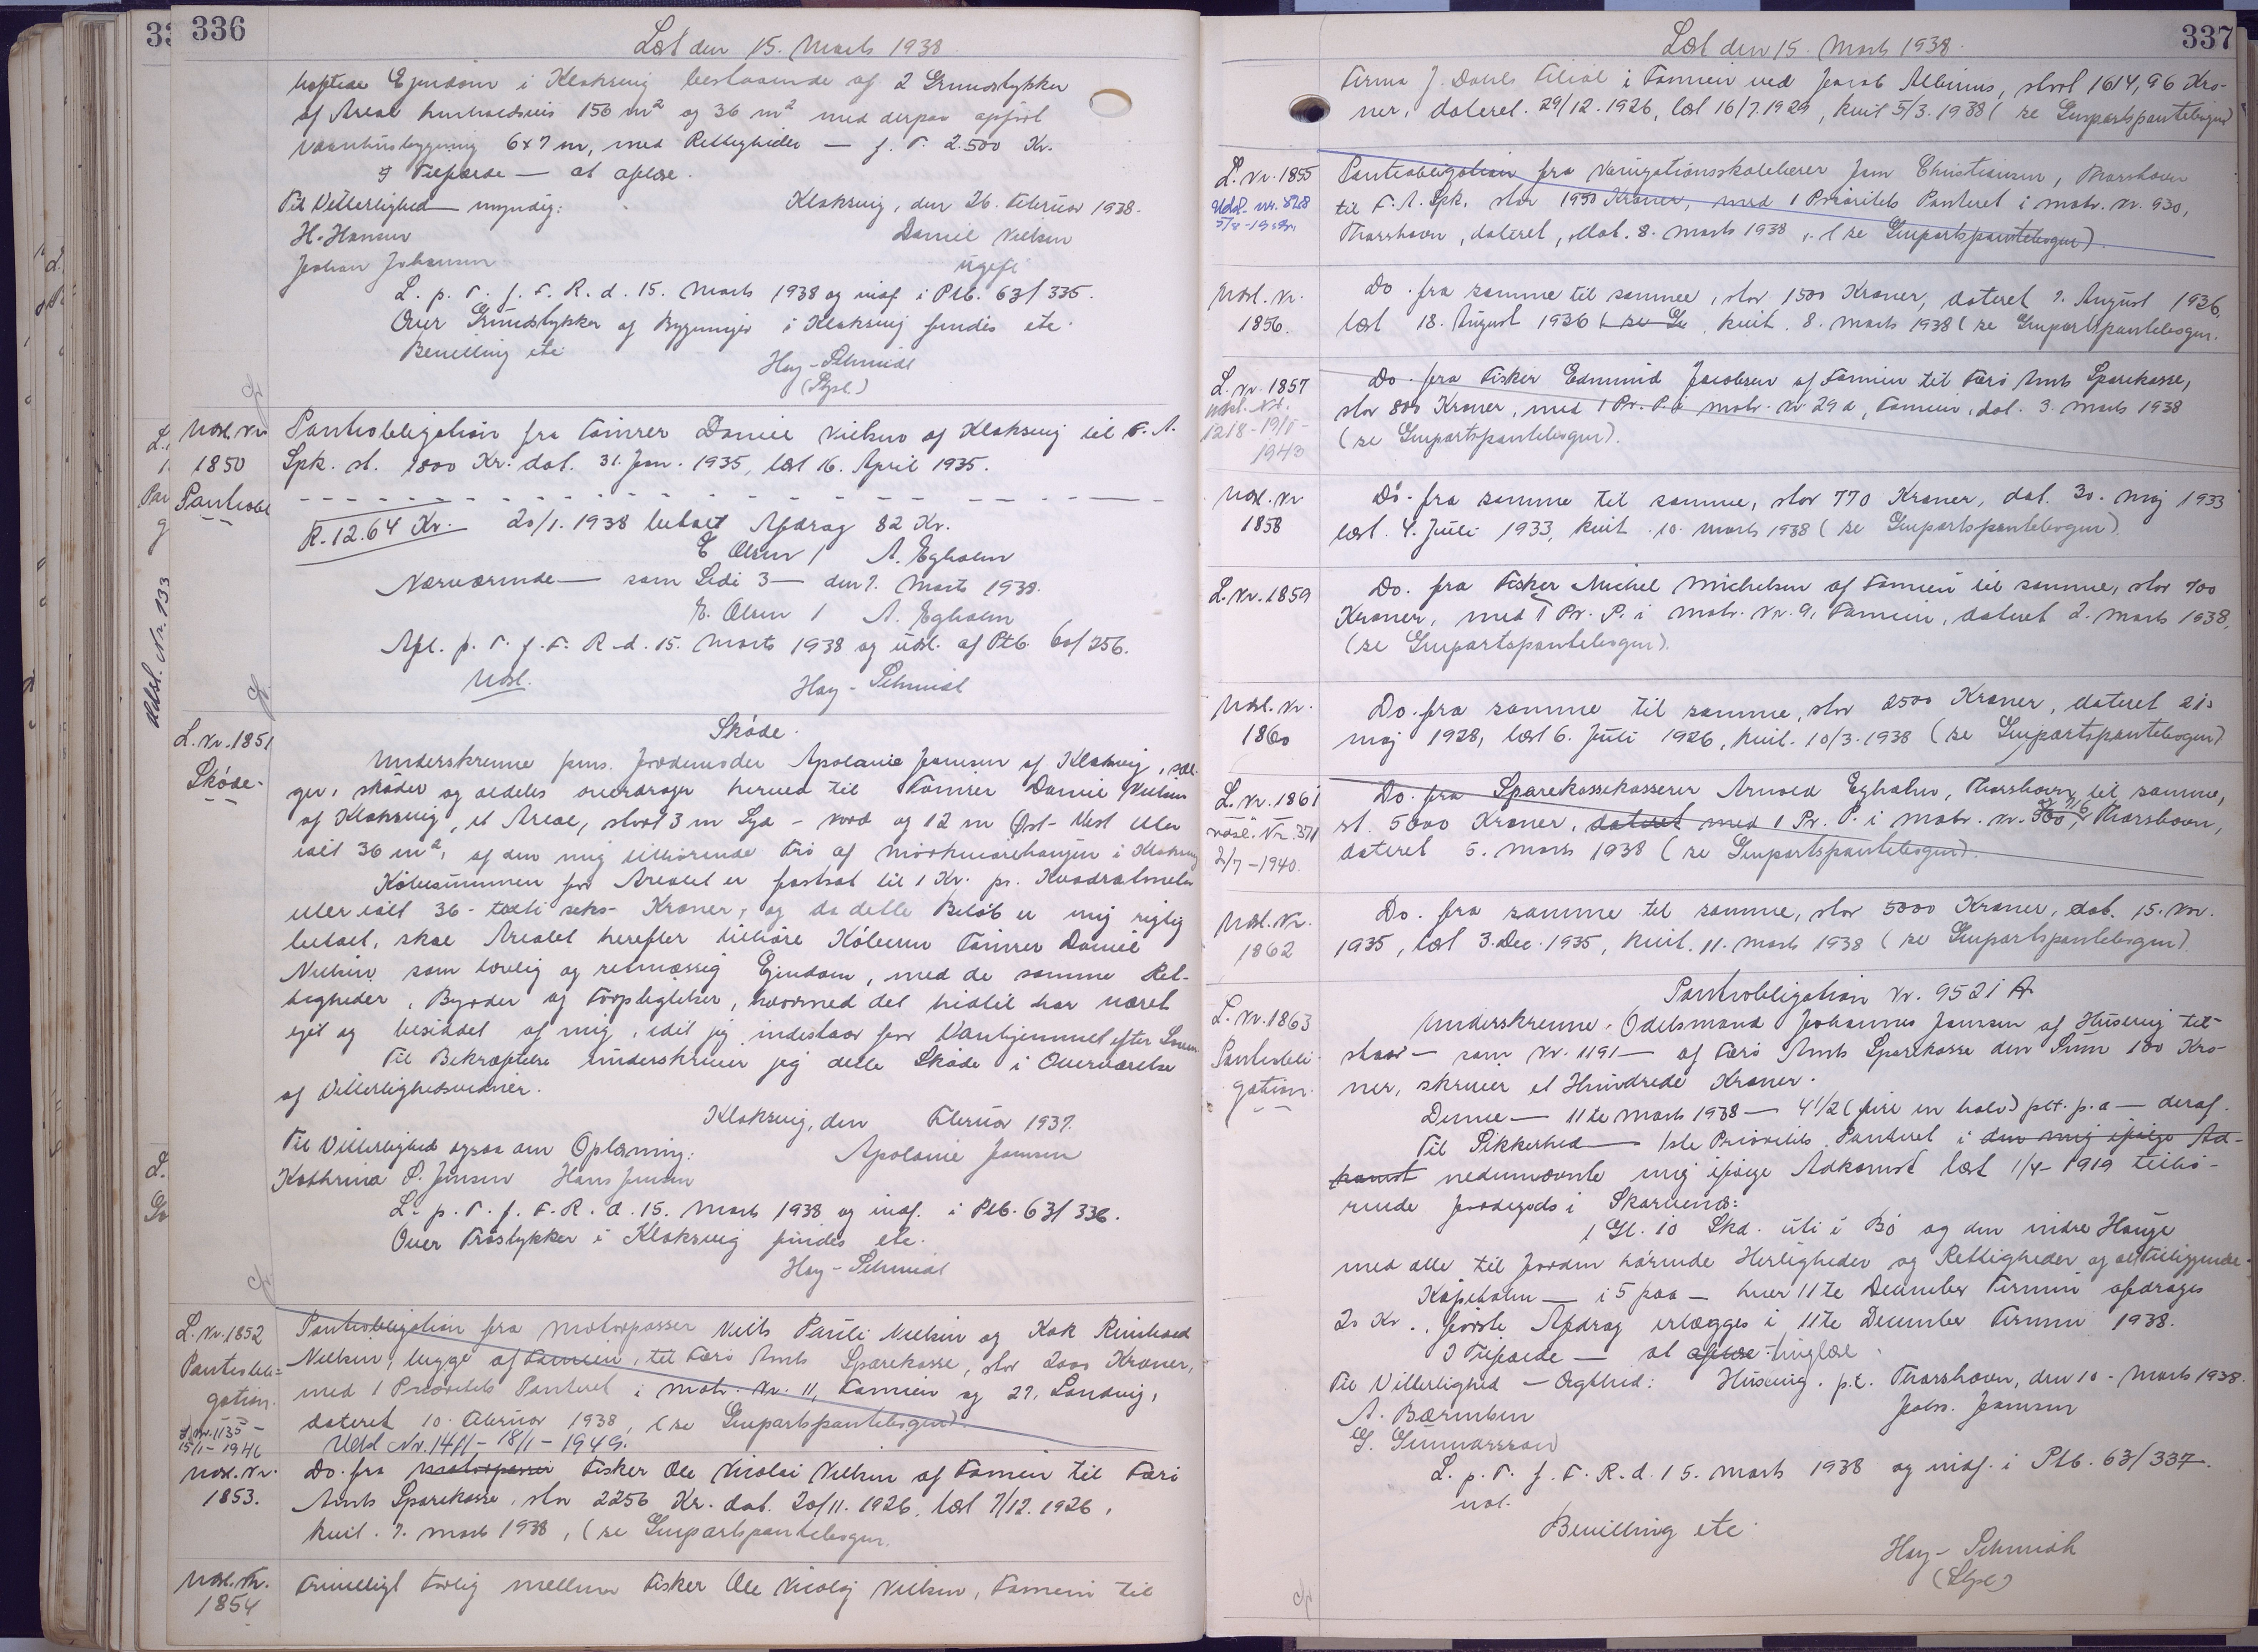 336
Læst den 15. Marts 1938.
heftede Ejendom i Klaksvig bestaaende af 2 Grundstykker
af Areal henholdsvis 156 m² og 36 m² med derpaa opført
Vaanhusbygning 6x7 m, med Rettigheder — f. T. 2.500 Kr.
I Tilfælde — at aflæse.
Til Vitterlighed — myndig:
Klaksvig, den 26. Februar 1938.
H. Hansen
Daniel Nielsen
Johan Johansen
ugift
L. p. T. f. F. R. d. 15. Marts 1938 og indf. i Ptb. 63/335.
Over Grundstykker og Bygninger i Klaksvig findes etc.
Bevilling etc.
Hay-Schmidt
Udsl. Nr.
1850
Panteobl
Panteobligation fra Tømrer Daniel Nielsen af Klaksvig til F. A.
Spk. st. 1800 Kr. dat. 31. Jan. 1935, læst 16. April 1935.
R. 12.64 Kr. 20/1. 1938 betalt Afdrag 82 Kr.
E. Olsen / A. Egholm
Nærværende — som Ledi 3 — den 7. Marts 1938.
E. Olsen / A. Egholm
Afl. p. T. f. F. R. d. 15. Marts 1938 og udsl. af Ptb. 60/256.
Udsl.
Hay-Schmidt
L. Nr. 1851
Skøde.
Skøde.
Underskrevne fhv. Jordemoder Apolonie Joensen af Klaksvig, sæl-
ger, skøder og aldeles overdrager herved til Tømrer Daniel Nielsen
af Klaksvig, et Areal, stort 3 m Syd - Nord og 12 m Øst - Vest eller
ialt 36 m², af den mig tilhørende Trø af Mørkmarehaugen i Klaksvig
Købesummen for Arealet er fastsat til 1 Kr. pr. Kvadratmeter
eller ialt 36 - treti seks - Kroner, og da dette Beløb er mig rigtig
betalt, skal Arealet herefter tilhøre Køberen Tømrer Daniel
Nielsen som lovlig og retmæssig Ejendom, med de samme Ret-
tigheder, Byrder og Forpligtelser, hvormed det hidtil har været
ejet og besiddet af mig, idet jeg indestaar for Vanhjemmel efter Loven
Til Bekræftelse underskriver jeg dette Skøde i Overværelse
af Vitterlighedsvidner.
Klaksvig, den Februar 1937.
Til Vitterlighed ogsaa om Oplæsning:
Apolonie Joensen
Kathrina P. Jensen Hans Jensen
L. p. T. f. F. R. d. 15. Marts 1938 og indf. i Ptb. 63/336.
Over Trøstykker i Klaksvig findes etc.
Hay-Schmidt
L. Nr. 1852
Panteobli-
gation.
Panteobligation fra Motorpasser Niels Pauli Nielsen og Kok Reinhard
Nielsen, begge af Famien, til Færø Amts Sparekasse, stor 2000 Kroner,
med 1 Prioritets Panteret i Matr. Nr. 11, Famien og 27, Sandvig,
dateret 10. Februar 1938, (se Genpartspantebogen).
Udsl Nr. 1411 - 18/1 - 1949.
15/1 - 1941
Udsl. Nr.
1853.
Do. fra Motorpasser Fisker Ole Nicolai Nielsen af Famien til Færø
Amts Sparekasse, stor 2256 Kr. dat. 20/11. 1926, læst 7/12. 1926,
kvit. 7. Marts 1938, (se Genpartspantebogen.
Udsl. Nr.
1854
Frivilligt Forlig mellem Fisker Ole Nicolaj Nielsen, Famien til
Udsl. Nr. 133
337
Læst den 15. Marts 1938.
Firma J. Dahls Filial i Famien ved Jacob Albinus, stort 1614,96 Kro-
ner, dateret 29/12. 1926, læst 16/7. 1929, kvit 5/3. 1938 (se Genpartspantebogen)
L. Nr. 1855
Udsl. nr. 828
Panteobligation fra Navigationsskolelærer Joen Christiansen, Thorshavn
til F. A. Spk. stor 1950 Kroner, med 1 Prioritets Panteret i Matr. Nr. 930,
Thorshavn, dateret, dat. 8. Marts 1938, (se Genpartspantebogen).
Udsl. Nr.
1856.
Do. fra samme til samme, stor 1500 Kroner, dateret 7. August 1936,
læst 18. August 1936 (se Ge, kvit. 8. Marts 1938 (se Genpartspantebogen.
L. Nr. 1857
Udsl. Nr.
1218 - 19/8 -
1943
Do. fra Fisker Edmund Jacobsen af Famien til Færø Amts Sparekasse,
stor 800 Kroner, med 1 Pr. P. i Matr. Nr. 29 a, Famien, dat. 3. Marts 1938
(se Genpartspantebogen).
Udsl. Nr
1858
Do. fra samme til samme, stor 770 Kroner, dat. 30. Maj 1933
læst. 4. Juli 1933, kvit. 10. Marts 1938 (se Genpartspantebogen).
L. Nr. 1859
Do. fra Fisker Michel Michelsen af Famien til samme, stor 700
Kroner, med 1 Pr. P. i Matr. Nr. 9, Famien, dateret 2. Marts 1938,
(se Genpartspantebogen).
Udsl. Nr.
1860
Do. fra samme til samme, stor 2500 Kroner, dateret 21.
Maj 1928, læst 6. Juli 1926, kvit. 10/3. 1938 (se Genpartspantebogen)
L. Nr. 1861
Udsl. Nr. 371
2/7 - 1940.
Do. fra Sparekassekasserer Arnold Egholm, Thorshavn til samme,
st. 5000 Kroner, dateret med 1 Pr. P. i Matr. Nr. 560, Thorshavn,
dateret 5. Marts 1938 (se Genpartspantebogen).
Udsl. Nr.
1862
Do. fra samme til samme, stor 5000 Kroner, dat. 15. Nov.
1935, læst 3. Dec. 1935, kvit. 11. Marts 1938 (se Genpartspantebogen).
L. Nr. 1863
Panteobli-
gation.
Panteobligation Nr. 9521 A
Underskrevne, Odelsmand Johannes Joensen af Husevig til-
staar — som Nr. 1191 — af Færø Amts Sparekasse den Sum 100 Kro-
ner, skriver et Hundrede Kroner.
Denne — 11te Marts 1938 — 4 1/2 (fire en halv) pct. p. a — deraf.
Til Sikkerhed — 1ste Prioritets Panteret i den mig ifølge Ad-
komst nedennævnte mig ifølge Adkomst læst 1/4 - 1919 tilhø-
rende Jordegods i Skarvenæ:
1 Gl. 10 Skd. uti i Bø og den indre Hauge
med alle til Jorden hørende Herligheder og Rettigheder og alt Tilliggende.
Kapitalen — i 5 paa — hver 11te December Termin afdrages
20 Kr., første Afdrag erlægges i 11te December Termin 1938.
I Tilfælde — at aflæse tinglæse.
Til Vitterlighed — Ægthed: Husevig. p.t. Thorshavn, den 10. Marts 1938.
A. Bærentsen
Johs. Joensen
G. Gunnarsson
L. p. T. f. F. R. d. 15. Marts 1938 og indf. i Ptb. 63/337.
Bevilling etc.
Hay-Schmidt